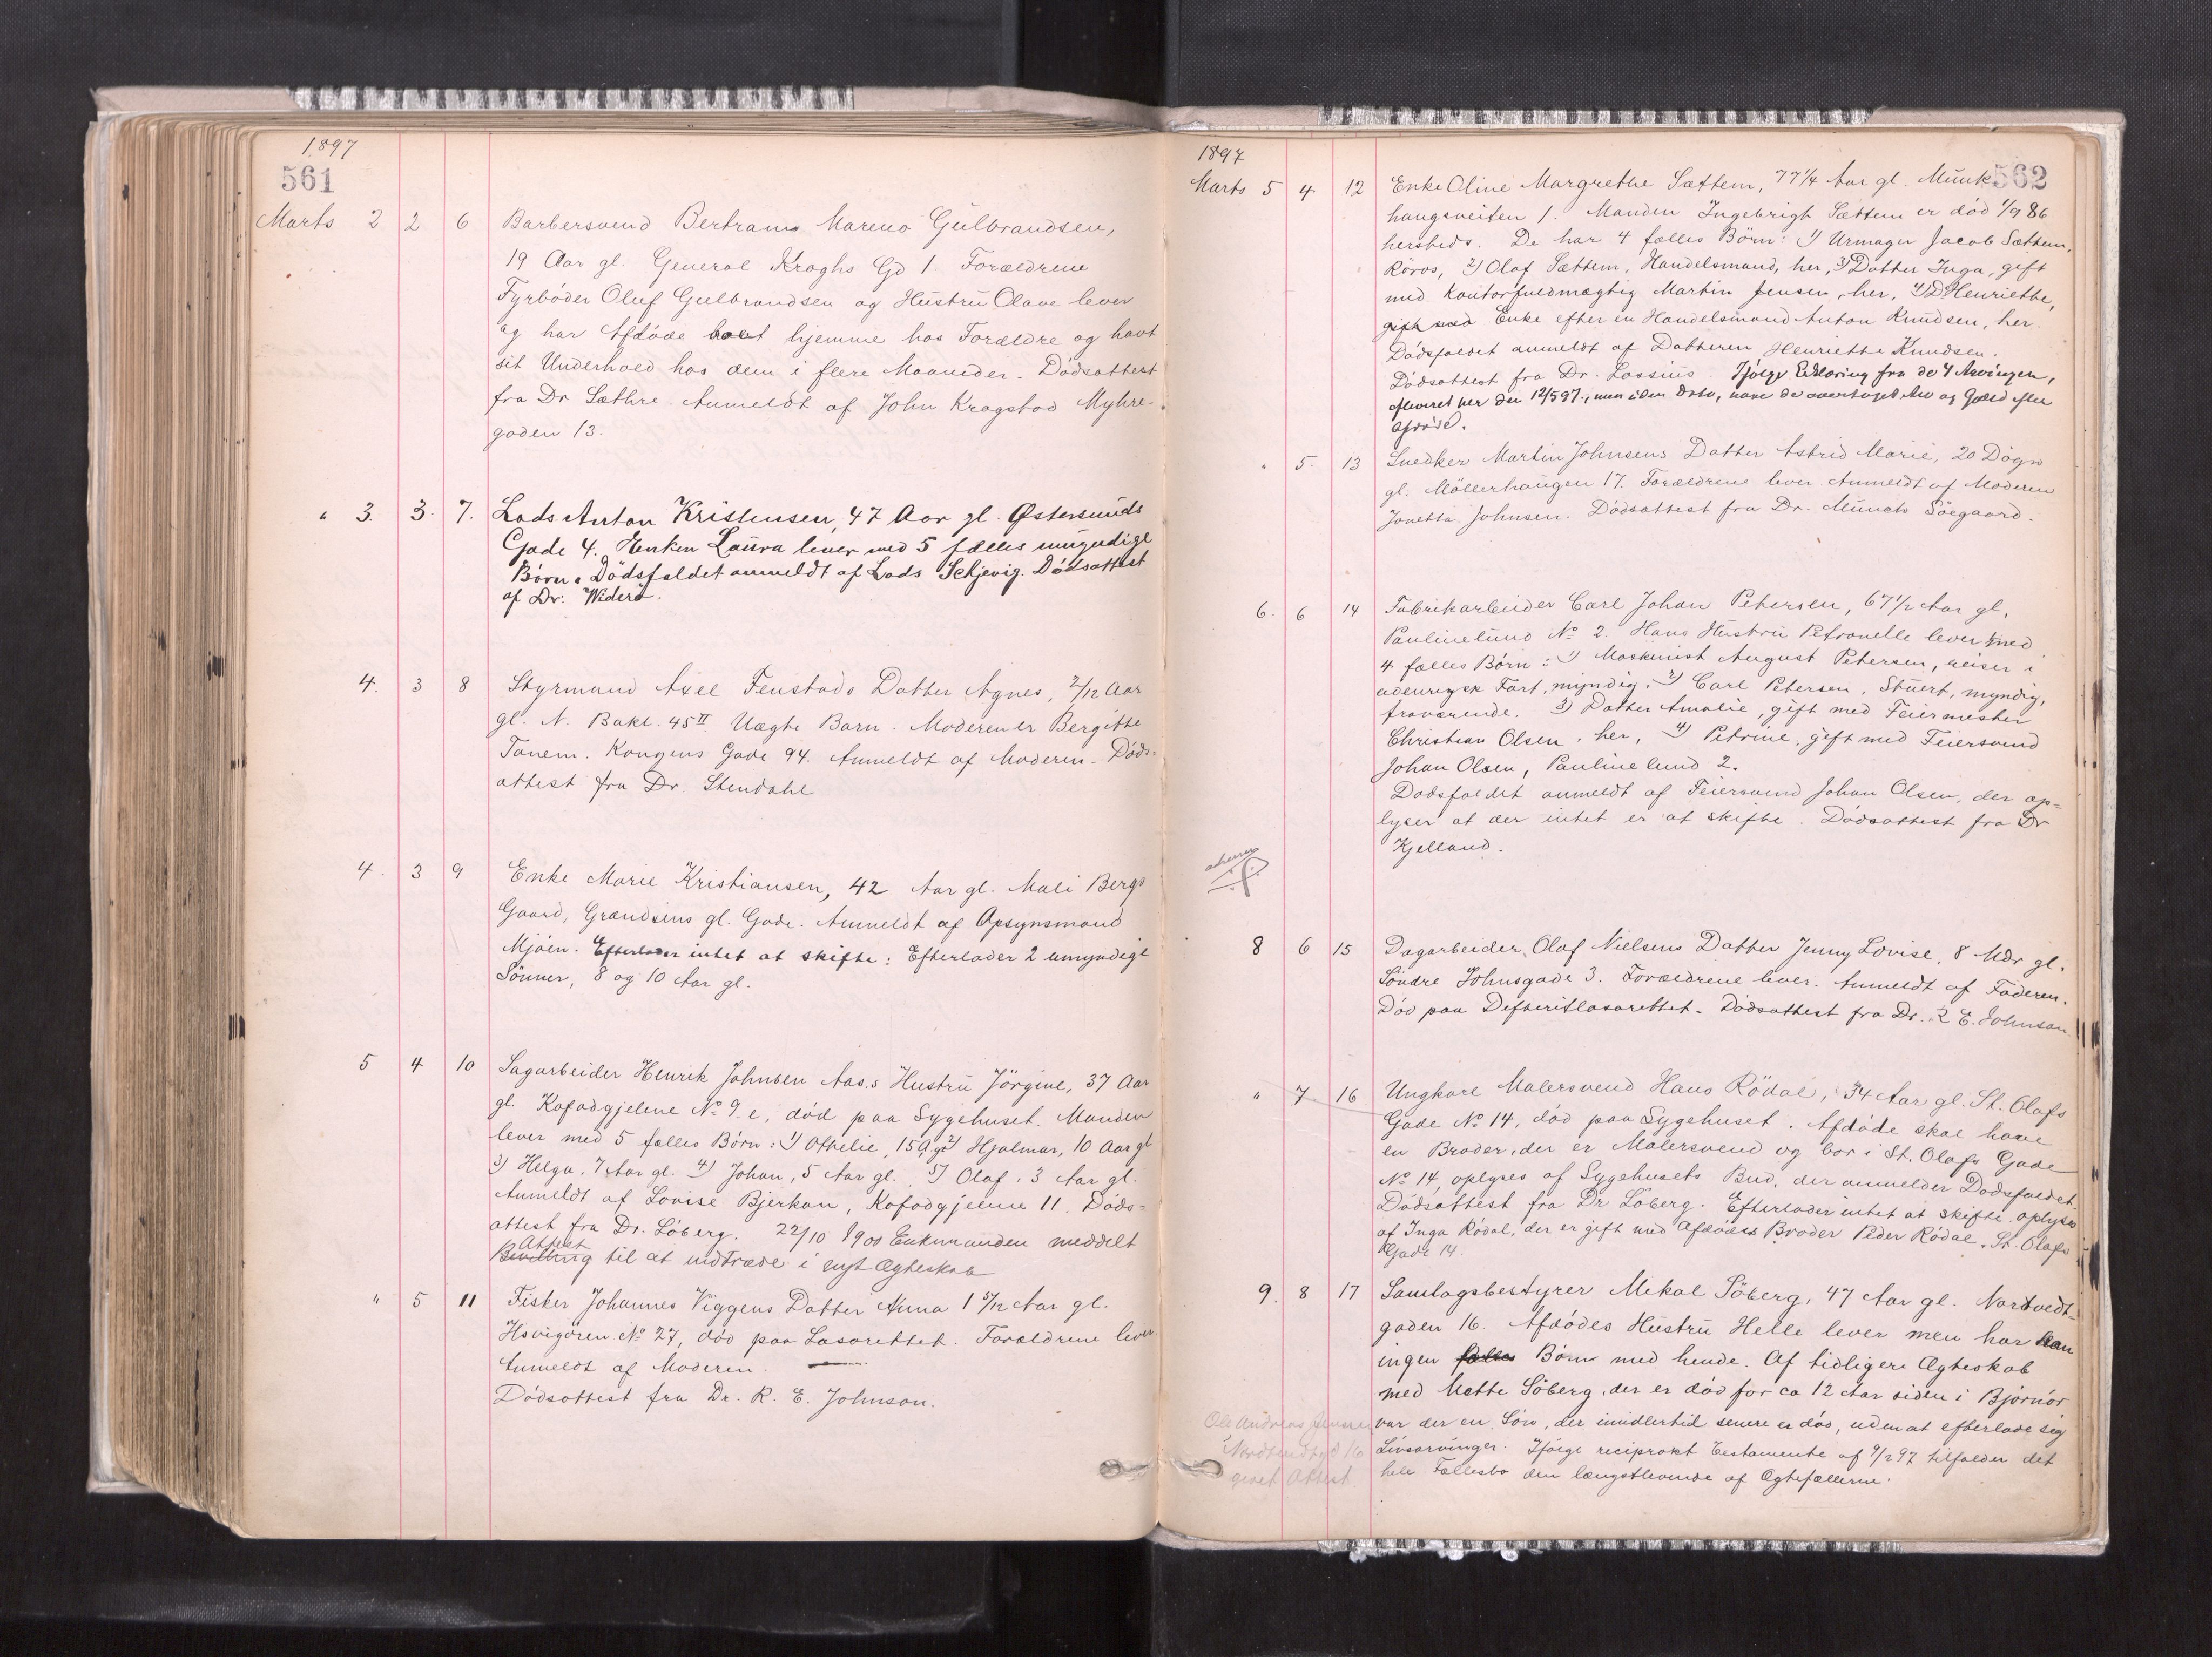 1897
561
Marts 2 2 6 Barbersvend Bertram Mareno Gulbrandsen,
19 Aar gl. General Kroghs Gd 1. Forældrene
Fyrbøder Oluf Gulbrandsen og Hustru Olave lever
og har Afdøde boet hjemme hos Forældre og havt
sit Underhold hos dem i flere Maaneder. Dødsattest
fra Dr Sæthre. Anmeldt af John Kragstad Myhre-
gaden 13.
" 3. 3. 7. Lods Anton Kristensen, 47 Aar gl. Østersunds
Gade 4. Enken Laura lever med 5 fælles umyndige
Børn. Dödsfaldet anmeldt af Lods Schjevig. Dödsattest
af Dr. Widerö.
4. 3 8 Styrmand Axel Fenstads Datter Agnes, 2/12 Aar
gl. N. Bakl. 45 II Uægte Barn. Moderen er Bergitte
Tanem. Kongens Gade 94. Anmeldt af Moderen. Døds-
attest fra Dr. Stendahl
4. 3 9 Enke Marie Kristiansen, 42 Aar gl. Mali Bergs
Gaard, Grændsens gl. Gade. Anmeldt af Opsynsmand
Mjøen. Efterlader intet at skifte: Efterlader 2 umyndige
Sønner, 8 og 10 Aar gl.
5 4 10 Sagarbeider Henrik Johnsen Aas.s Hustru Jörgine, 37 Aar
gl. Kofodgjelene No 9 e, död paa Sygehuset. Manden
lever med 5 fælles Börn: 1) Othelie, 15 A. gl. 2) Hjalmar, 10 Aar gl
3) Helga, 7 Aar gl. 4) Johan, 5 Aar gl. 5) Olaf, 3 Aar gl.
Anmeldt af Lovise Bjerkan, Kofodgjelene 11. Døds-
attest fra Dr. Löberg. 22/10 1900 Enkemanden meddelt
Attest
til at indtræde i nyt Ægteskab
" 5 11 Fisker Johannes Viggens Datter Anna 1 5/12 Aar gl.
Hsvigören No 27, död paa Lasarettet. Forældrene lever
Anmeldt af Moderen
Dödsattest fra Dr. R. E. Johnson.
1897
562
Marts 5 4 12 Enke Oline Margrethe Sættem, 77 1/4 Aar gl. Munk
haugveiten 1. Manden Ingebrigt Sættem er död 1/9 86
hersteds. De har 4 fælles Börn: 1) Urmager Jacob Sættem,
Röros, 2) Olaf Sættem, Handelsmand, her, 3) Datter Inga, gift
med Kontorfuldmægtig Martin Jensen, her, 4) D. Henriette,
gift med Enke efter en Handelsmand Anton Knudsen, her.
Dödsfaldet anmeldt af Datteren Henriette Knudsen.
Dödsattest fra Dr. Lossius. Ifølge Erklæring fra de 4 Arvinger,
afleveret her den 12/5 97, men uden Dato, have de overtaget Arv og Gæld efter
Afdöde.
" 5. 13 Snedker Martin Johnsens Datter Astrid Marie, 20 Døgn
gl. Möllerhaugen 17. Forældrene lever. Anmeldt af Moderen
Jonetta Johnsen. Dödsattest fra Dr. Münch Söegaard.
6. 6 14 Fabrikarbeider Carl Johan Petersen, 67 1/2 Aar gl.
Paulinelund No 2. Hans Hustru Petronelle lever med
4 fælles Börn: 1) Maskinist August Petersen, reiser i
udenrigsk Fart, myndig, 2) Carl Petersen, Stuert, myndig,
fraværende. 3) Datter Amalie, gift med Feiermester
Christian Olsen, her, 4) Petrine, gift med Feiersvend
Johan Olsen, Paulinelund 2.
Dødsfaldet anmeldt af Feiersvend Johan Olsen, der op-
lyser at der intet er at skifte. Dödsattest fra Dr
Kjelland.
8 6 15 Dagarbeider Olaf Nielsens Datter Jenny Lovise, 8 Mdr gl.
Söndre Johnsgade 3. Forældrene lever. Anmeldt af Faderen.
Död paa Defteritlasarettet. Dödsattest fra Dr. R E. Johnson
" 7 16 Ungkarl Malersvend Hans Rödal, 34 Aar gl. St. Olafs
Gade No 14, död paa Sygehuset. Afdöde skal have
en Broder, der er Malersvend og bor i St. Olafs Gade
No 14, oplyses af Sygehusets Bud, der anmelder Dødsfaldet.
Dödsattest fra Dr Löberg. Efterlader intet at skifte oplyses
af Inga Rödal, der er gift med Afdödes Broder Peder Rödal, St. Olafs
Gade 14.
9. 8 17 Samlagsbestyrer Mikal Söberg, 47 Aar gl. Nordvedt-
gaden 16. Afdödes Hustru Helle lever men har han
ingen fælles Børn med hende. Af tidligere Ægteskab
med Mette Söberg, der er död for ca 12 Aar siden i Bjørnör
var der en Sön, der imidlertid senere er död, uden at efterlade sig
Livsarvinger. Ifølge reciprokt Testamente af 9/2 97 tilfalder det
hele Fællesbo den længstlevende af Ægtefællerne.
Ole Andreas
givet Attest